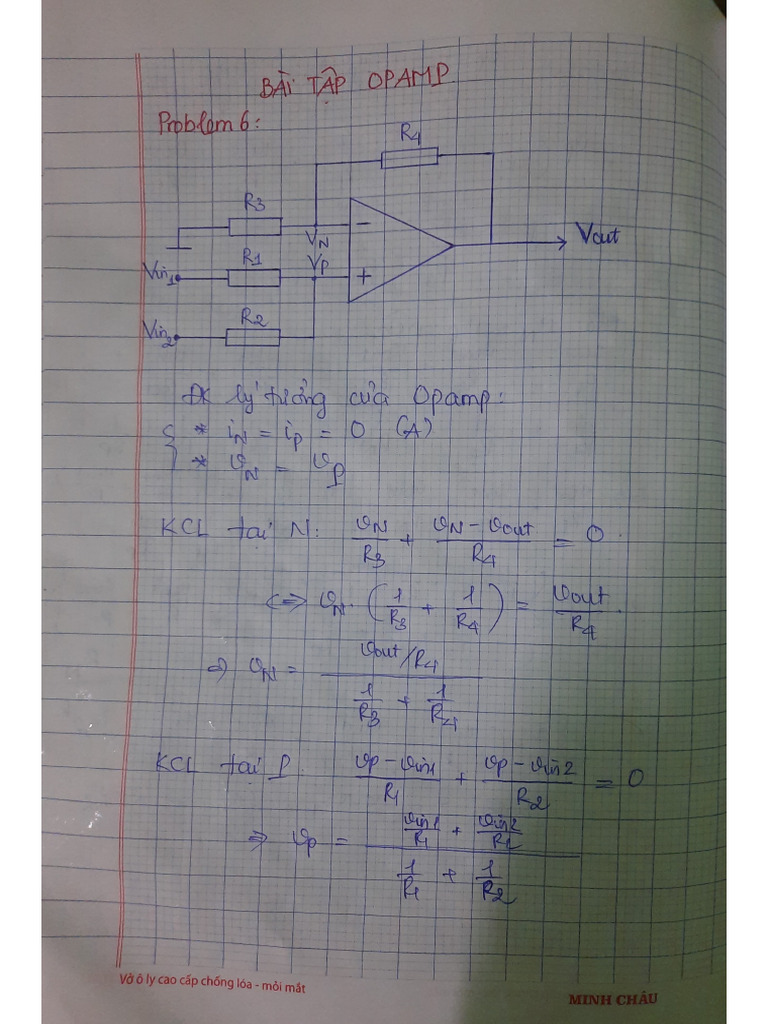 BÀI TẬP OPAMP
Problem 6:
R4
R3
VN
Vout
Vin1
R1
VP
Vin2
R2
ĐK lý tưởng của Opamp:
{ * iN = iP = 0 (A)
* vN = vP
KCL tại N: vN/R3 + (vN - vout)/R4 = 0
<=> vN . (1/R3 + 1/R4) = vout/R4
=> vN = (vout/R4) / (1/R3 + 1/R4)
KCL tại P: (vp - vin1)/R1 + (vp - vin2)/R2 = 0
=> vp = (vin1/R1 + vin2/R2) / (1/R1 + 1/R2)
Vở ô ly cao cấp chống lóa - mỏi mắt
MINH CHÂU